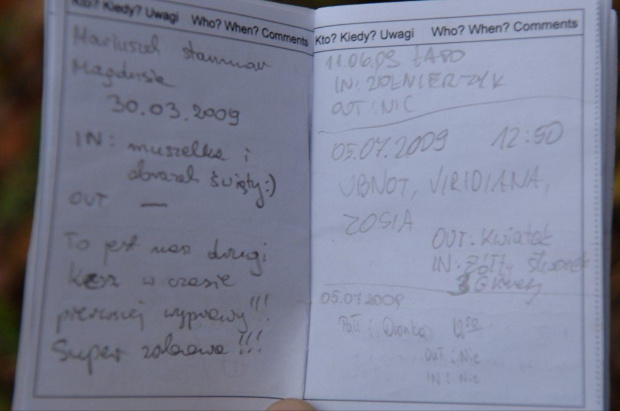 Kto? Kiedy? Uwagi Who? When? Comments
30.03.2009
IN: muszelka i
obrazek święty:)
OUT —
To jest nasz drugi
kesz w czasie
pierwszej wyprawy!!!
Super zabawa!!!
Kto? Kiedy? Uwagi Who? When? Comments
11.06.09
IN: ŻOŁNIERZYK
OUT: NIC
05.07.2009 12:50
VIRIDIANA,
ZOSIA
OUT: Kwiatek
IN: Żółty
05.07.2009
OUT: Nic
IN: Nic